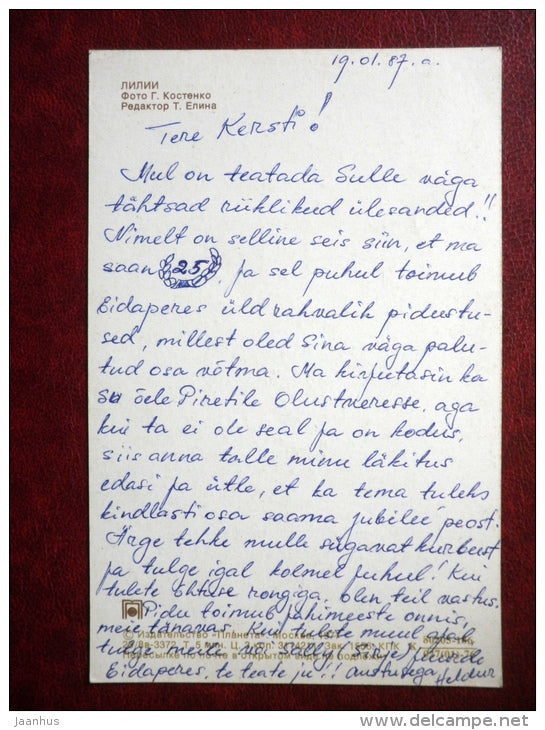 19.01.87.a.
ЛИЛИИ
Фото Г. Костенко
Редактор Т. Елина
Tere Kersti!
Mul on teatada Sulle väga
tähtsad riiklikud ülesanded!!
Nimelt on selline seis siin, et ma
saan 25, ja sel puhul toimub
Eidaperes üldrahvalik pidustu-
sed, millest oled Sina väga palu-
tud osa võtma. Ma kirjutasin ka
Su õele Piretile Olustveresse, aga
kui ta ei ole seal ja on kodus,
siis anna talle minu läkitus
edasi ja ütle, et ka tema tuleks
kindlasti osa saama jubileepeost.
Ärge tehke mulle sügavat kurbust
ja tulge igal kolmel juhul! Kui
tulete õhtuse rongiga, olen teil vastas.
Pidu toimub jahimeeste onnis,
meie tänavas. Kui tulete muul ajal,
© Издательство «Планета» Москва
tulge meile või Sally (Sirje) juurde
Пересылка по почте в открытом виде не
Eidaperes, te teate ju!! Austusega Heldur
jaanhus
www.delcampe.net